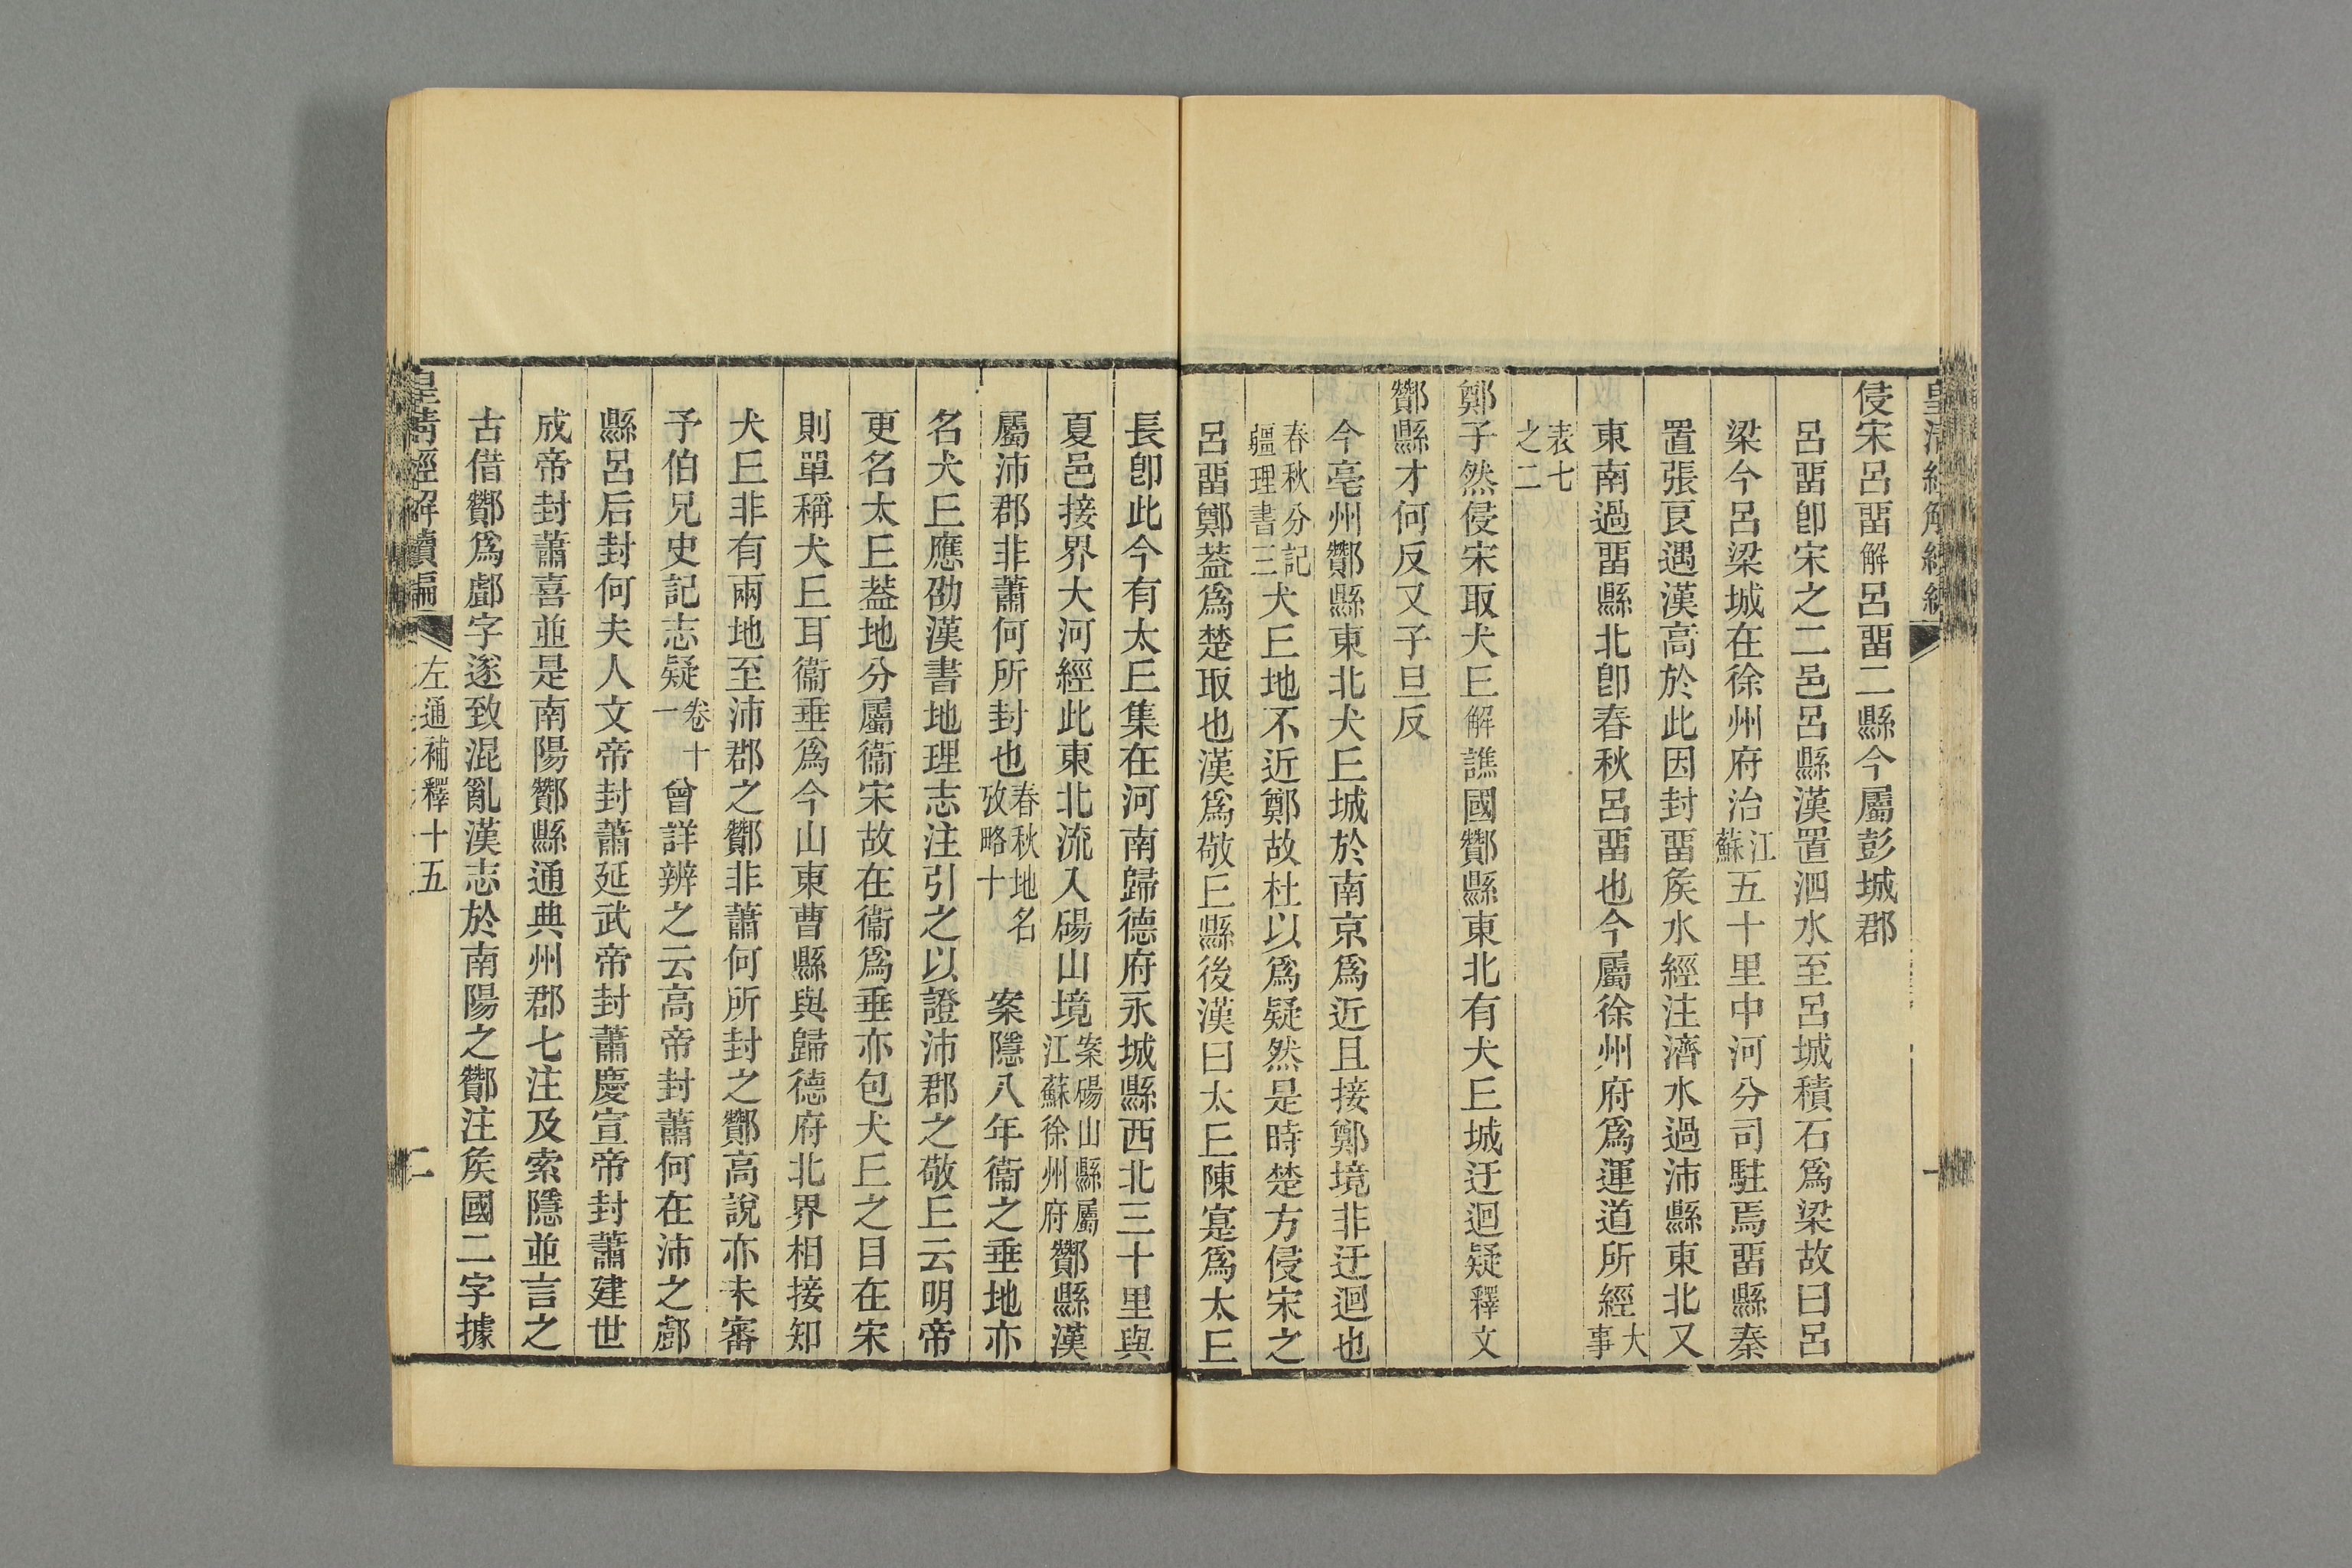 皇清經解續編
侵宋呂畱解呂畱二縣今屬彭城郡
呂畱卽宋之二邑呂縣漢置泗水至呂城積石爲梁故曰呂
梁今呂梁城在徐州府治江蘇五十里中河分司駐焉畱縣秦
置張良遇漢高於此因封畱矦水經注濟水過沛縣東北又
東南過畱縣北卽春秋呂畱也今屬徐州府爲運道所經大事
表七之二
鄭子然侵宋取犬𠀉解譙國酇縣東北有犬𠀉城迂迴疑釋文
酇縣才何反又子旦反
今亳州酇縣東北犬𠀉城於南京爲近且接鄭境非迂迴也
春秋分記疆理書三犬𠀉地不近鄭故杜以爲疑然是時楚方侵宋之
呂畱鄭蓋爲楚取也漢爲敬𠀉縣後漢曰太𠀉陳寔爲太𠀉
長卽此今有太𠀉集在河南歸德府永城縣西北三十里與
夏邑接界大河經此東北流入碭山境案碭山縣屬江蘇徐州府酇縣漢
屬沛郡非蕭何所封也春秋地名攷略十案隱八年衞之垂地亦
名犬𠀉應劭漢書地理志注引之以證沛郡之敬𠀉云明帝
更名太𠀉蓋地分屬衞宋故在衞爲垂亦包犬𠀉之目在宋
則單稱犬𠀉耳衞垂爲今山東曹縣與歸德府北界相接知
犬𠀉非有兩地至沛郡之酇非蕭何所封之酇高說亦未審
予伯兄史記志疑卷十一曾詳辨之云高帝封蕭何在沛之酇
縣呂后封何夫人文帝封蕭延武帝封蕭慶宣帝封蕭建世
成帝封蕭喜並是南陽酇縣通典州郡七注及索隱並言之
古借酇爲𨝸字遂致混亂漢志於南陽之酇注矦國二字據
皇清經解續編 左通補釋十五 二